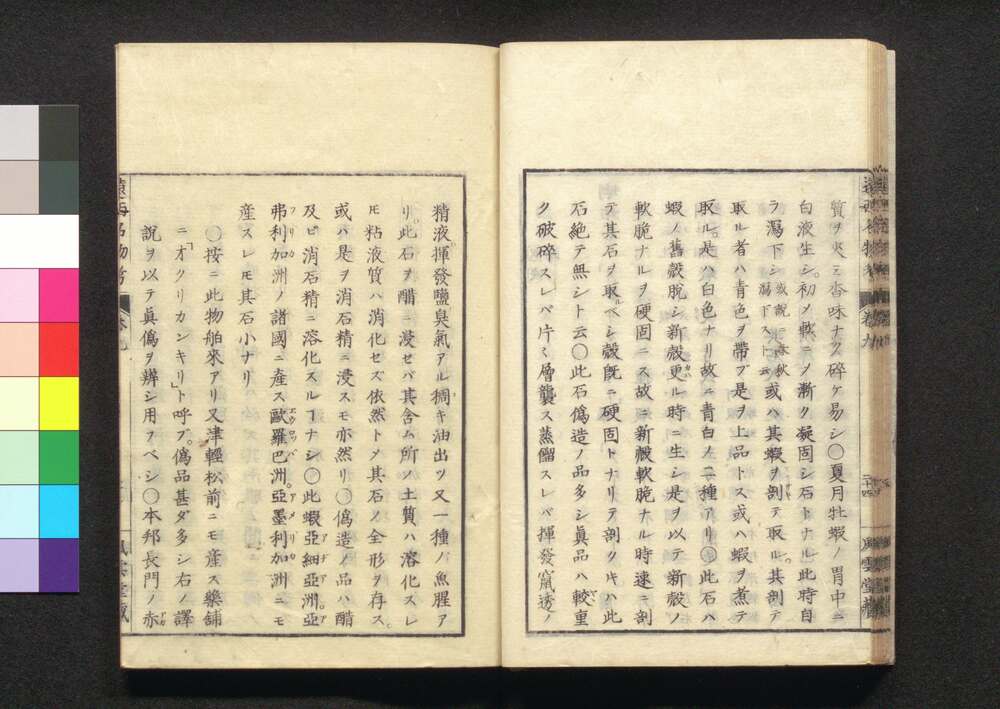 質ヲ夾ミ香味ナク碎ケ易シ〇夏月牡蝦ノ胃中ニ
白液生シ初メ軟ニシテ漸ク凝固シ石トナル此時自
ラ瀉下シ或說ニ春秋瀉下スト云或ハ其蝦ヲ剖テ取ル其剖テ
取ル者ハ青色ヲ帶ブ是ヲ上品トス或ハ蝦ヲ煮テ
取ル是ハ白色ナリ故ニ青白ノ二種アリ〇此石ハ
蝦ノ舊殼脫シ新殼更ル時ニ生シ是ヲ以テ新殼ノ
軟脆ナルヲ硬固ニス故ニ新殼軟脆ナル時速ニ剖
テ其石ヲ取ルベシ殼旣ニ硬固トナリテ剖クキハ此
石絶テ無シト云〇此石僞造ノ品多シ眞品ハ較重
ク破碎スレバ片々層襲ス蒸餾スレバ揮發竄透ノ
遠西名物考
卷九
風雲堂藏
精液揮發鹽臭氣アル稠キ油出ツ又一種ノ魚腥ア
リ此石ヲ醋ニ浸セバ其含ム所ノ土質ハ溶化スレ
𪜈粘液質ハ消化セズ依然トメ其石ノ全形ヲ存ス
或ハ是ヲ消石精ニ浸スモ亦然リ〇僞造ノ品ハ醋
及ビ消石精ニ溶化スルヿナシ〇此蝦亞細亞洲亞
弗利加洲ノ諸國ニ產ス歐羅巴洲亞墨利加洲ニモ
產スレモ其石小ナリ
〇按ニ此物舶來アリ又津輕松前ニモ產ス藥鋪
ニ「オクリカンキリ」ト呼ブ僞品甚ダ多シ右ノ譯
說ヲ以テ眞僞ヲ辨シ用フベシ〇本邦長門ノ赤